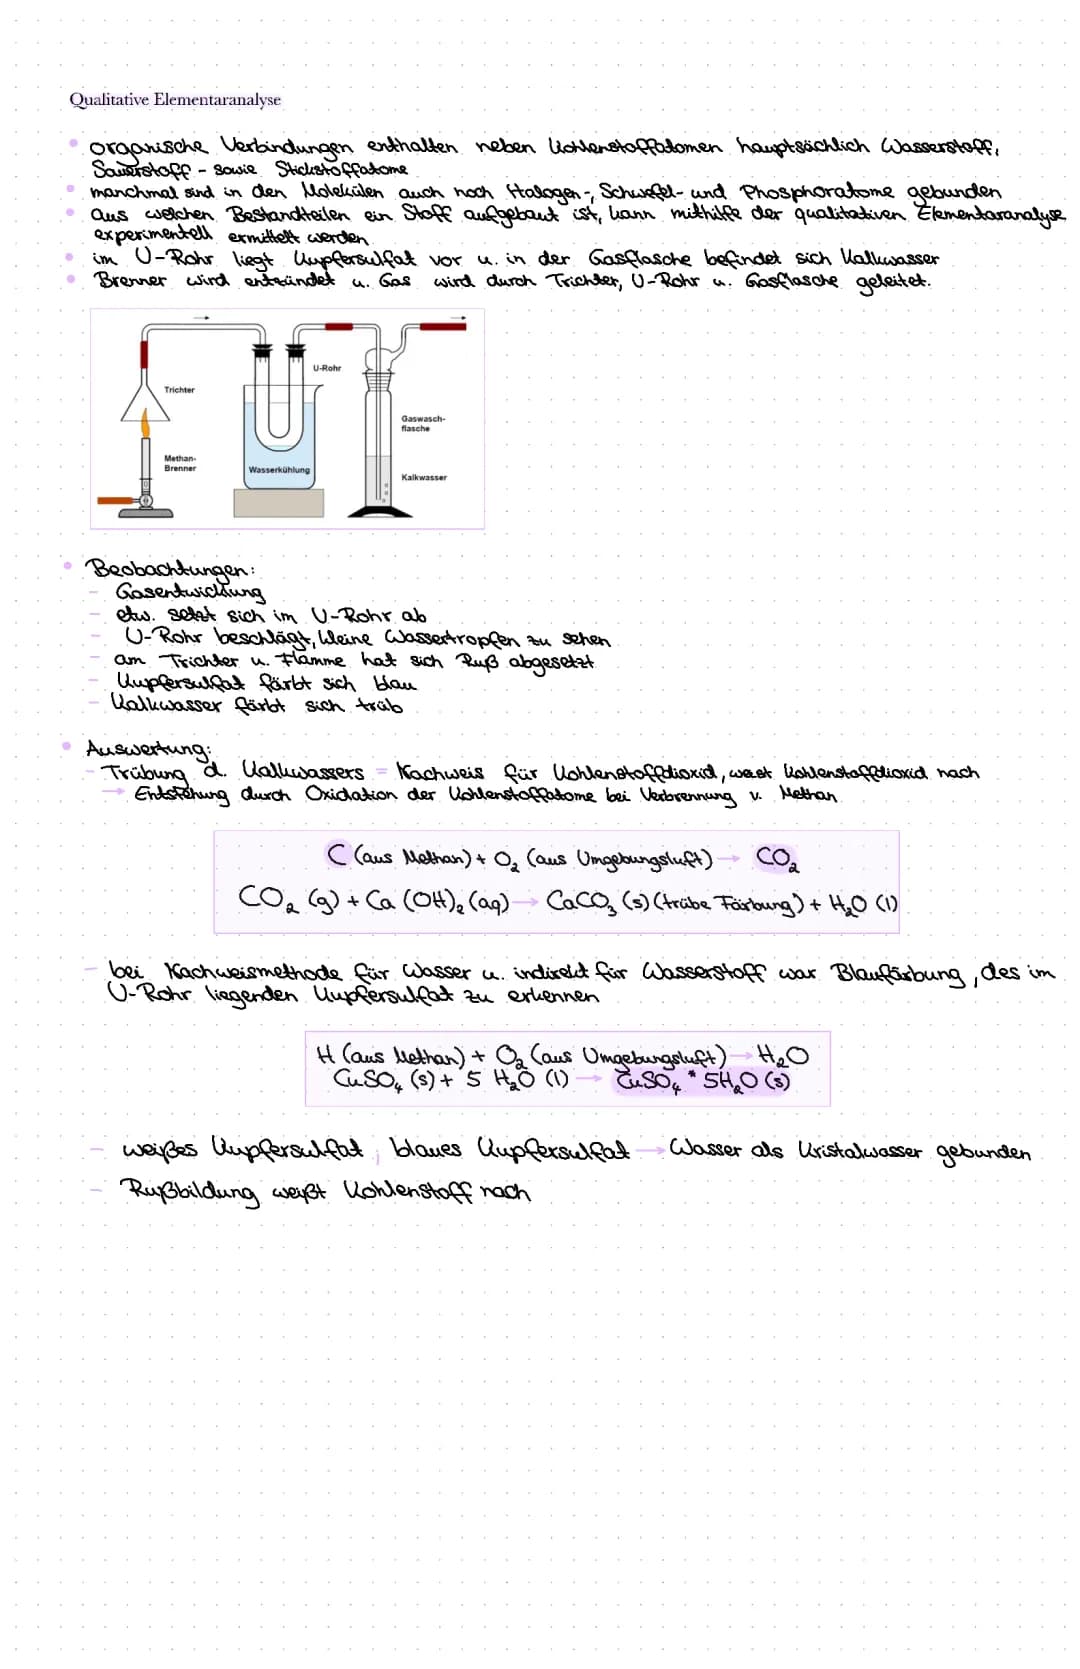 Qualitative Elementaranalyse
• organische Verbindungen enthalten neben Kohlenstoffatomen hauptsächlich Wasserstoff,
Sauerstoff - sowie Stickstoffatome
• manchmal sind in den Molekülen auch noch Halogen-, Schwefel- und Phosphoratome gebunden
• aus welchen Bestandteilen ein Stoff aufgebaut ist, kann mithilfe der qualitativen Elementaranalyse
experimentell ermittelt werden
• im U-Rohr liegt Kupfersulfat vor u. in der Gasflasche befindet sich Kalkwasser
• Brenner wird entzündet u. Gas wird durch Trichter, U-Rohr u. Gasflasche geleitet.
U-Rohr
Trichter
Gaswasch-
flasche
Methan-
Brenner
Wasserkühlung
Kalkwasser
• Beobachtungen:
- Gasentwicklung
- etw. setzt sich im U-Rohr ab
- U-Rohr beschlägt, kleine Wassertropfen zu sehen
- am Trichter u. Flamme hat sich Ruß abgesetzt
- Kupfersulfat färbt sich blau
- Kalkwasser färbt sich trüb
• Auswertung:
- Trübung d. Kalkwassers = Nachweis für Kohlenstoffdioxid, weist Kohlenstoffdioxid nach
→ Entstehung durch Oxidation der Kohlenstoffatome bei Verbrennung v. Methan
C (aus Methan) + O₂ (aus Umgebungsluft) → CO₂
CO₂ (g) + Ca (OH)₂ (aq) → CaCO₃ (s) (trübe Färbung) + H₂O (l)
- bei Nachweismethode für Wasser u. indirekt für Wasserstoff war Blaufärbung, des im
U-Rohr liegenden Kupfersulfat zu erkennen
H (aus Methan) + O₂ (aus Umgebungsluft) → H₂O
CuSO₄ (s) + 5 H₂O (l) → CuSO₄ * 5H₂O (s)
- weißes Kupfersulfat ; blaues Kupfersulfat → Wasser als Kristalwasser gebunden
- Rußbildung weißt Kohlenstoff nach